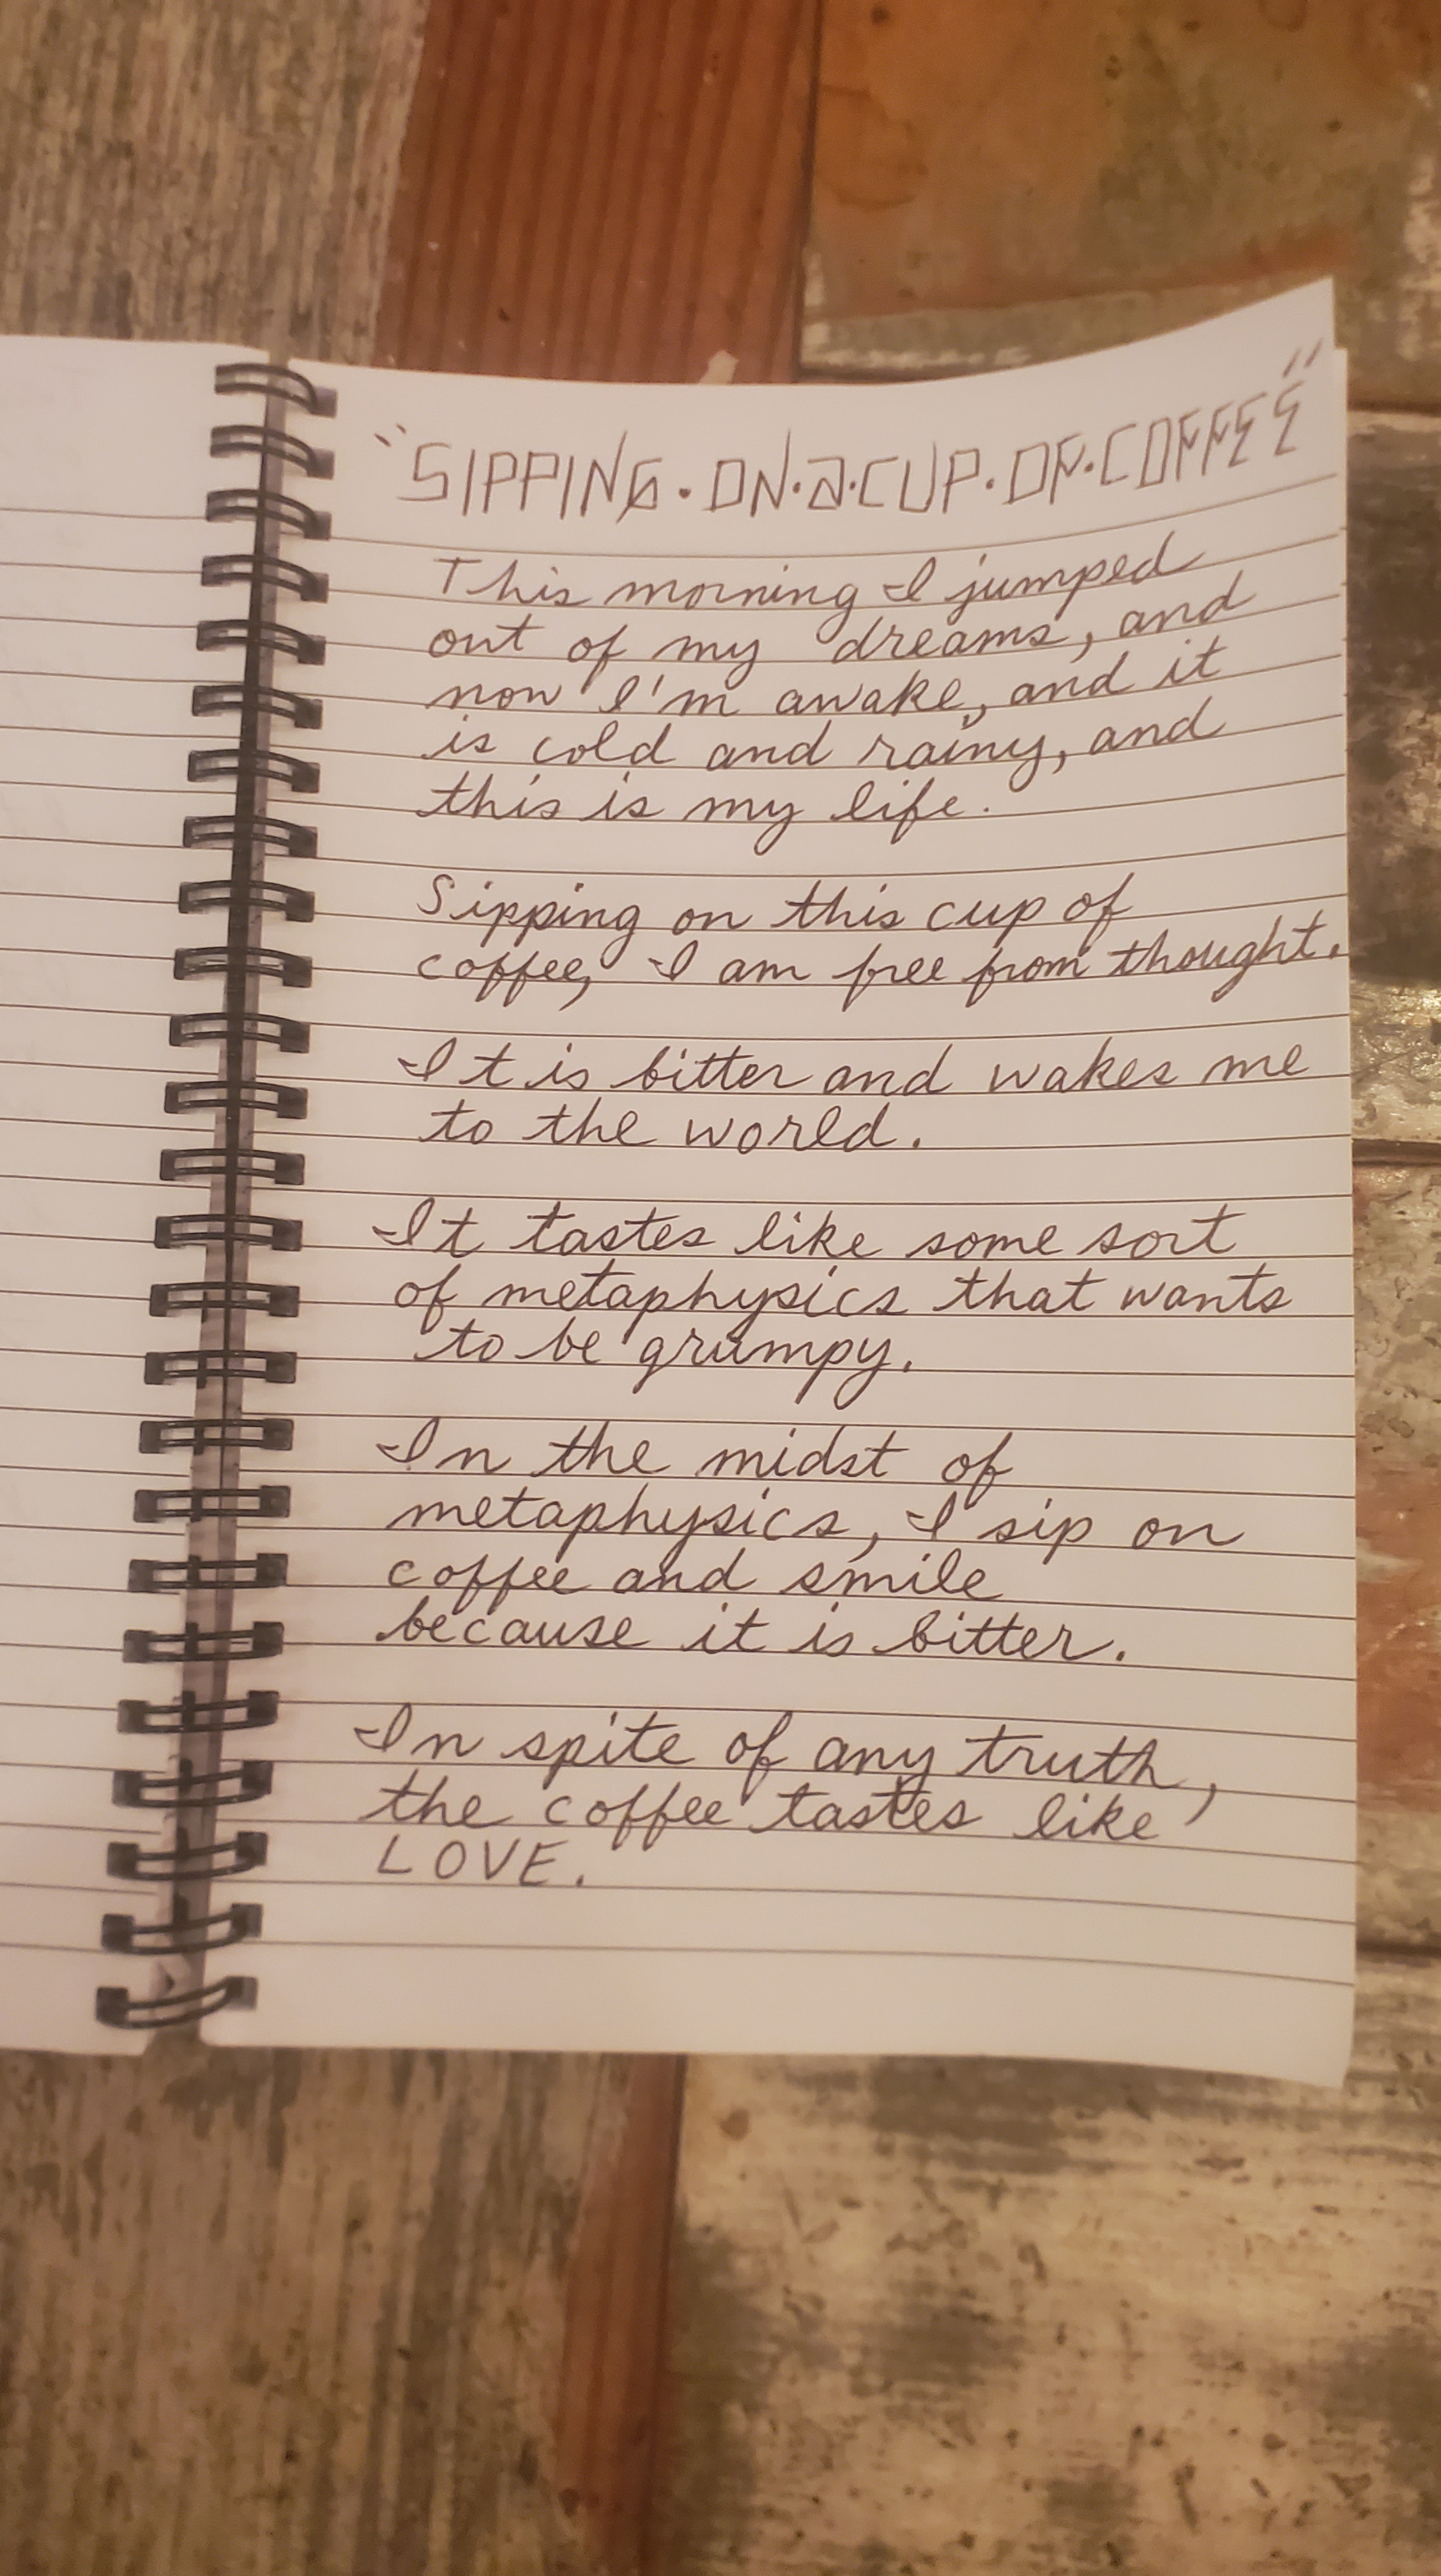 "SIPPING·ON·a·CUP·OF·COFFEE"
This morning I jumped
out of my dreams, and
now I'm awake, and it
is cold and rainy, and
this is my life.
Sipping on this cup of
coffee, I am free from thought.
It is bitter and wakes me
to the world.
It tastes like some sort
of metaphysics that wants
to be grumpy.
In the midst of
metaphysics, I sip on
coffee and smile
because it is bitter.
In spite of any truth,
the coffee tastes like
LOVE.